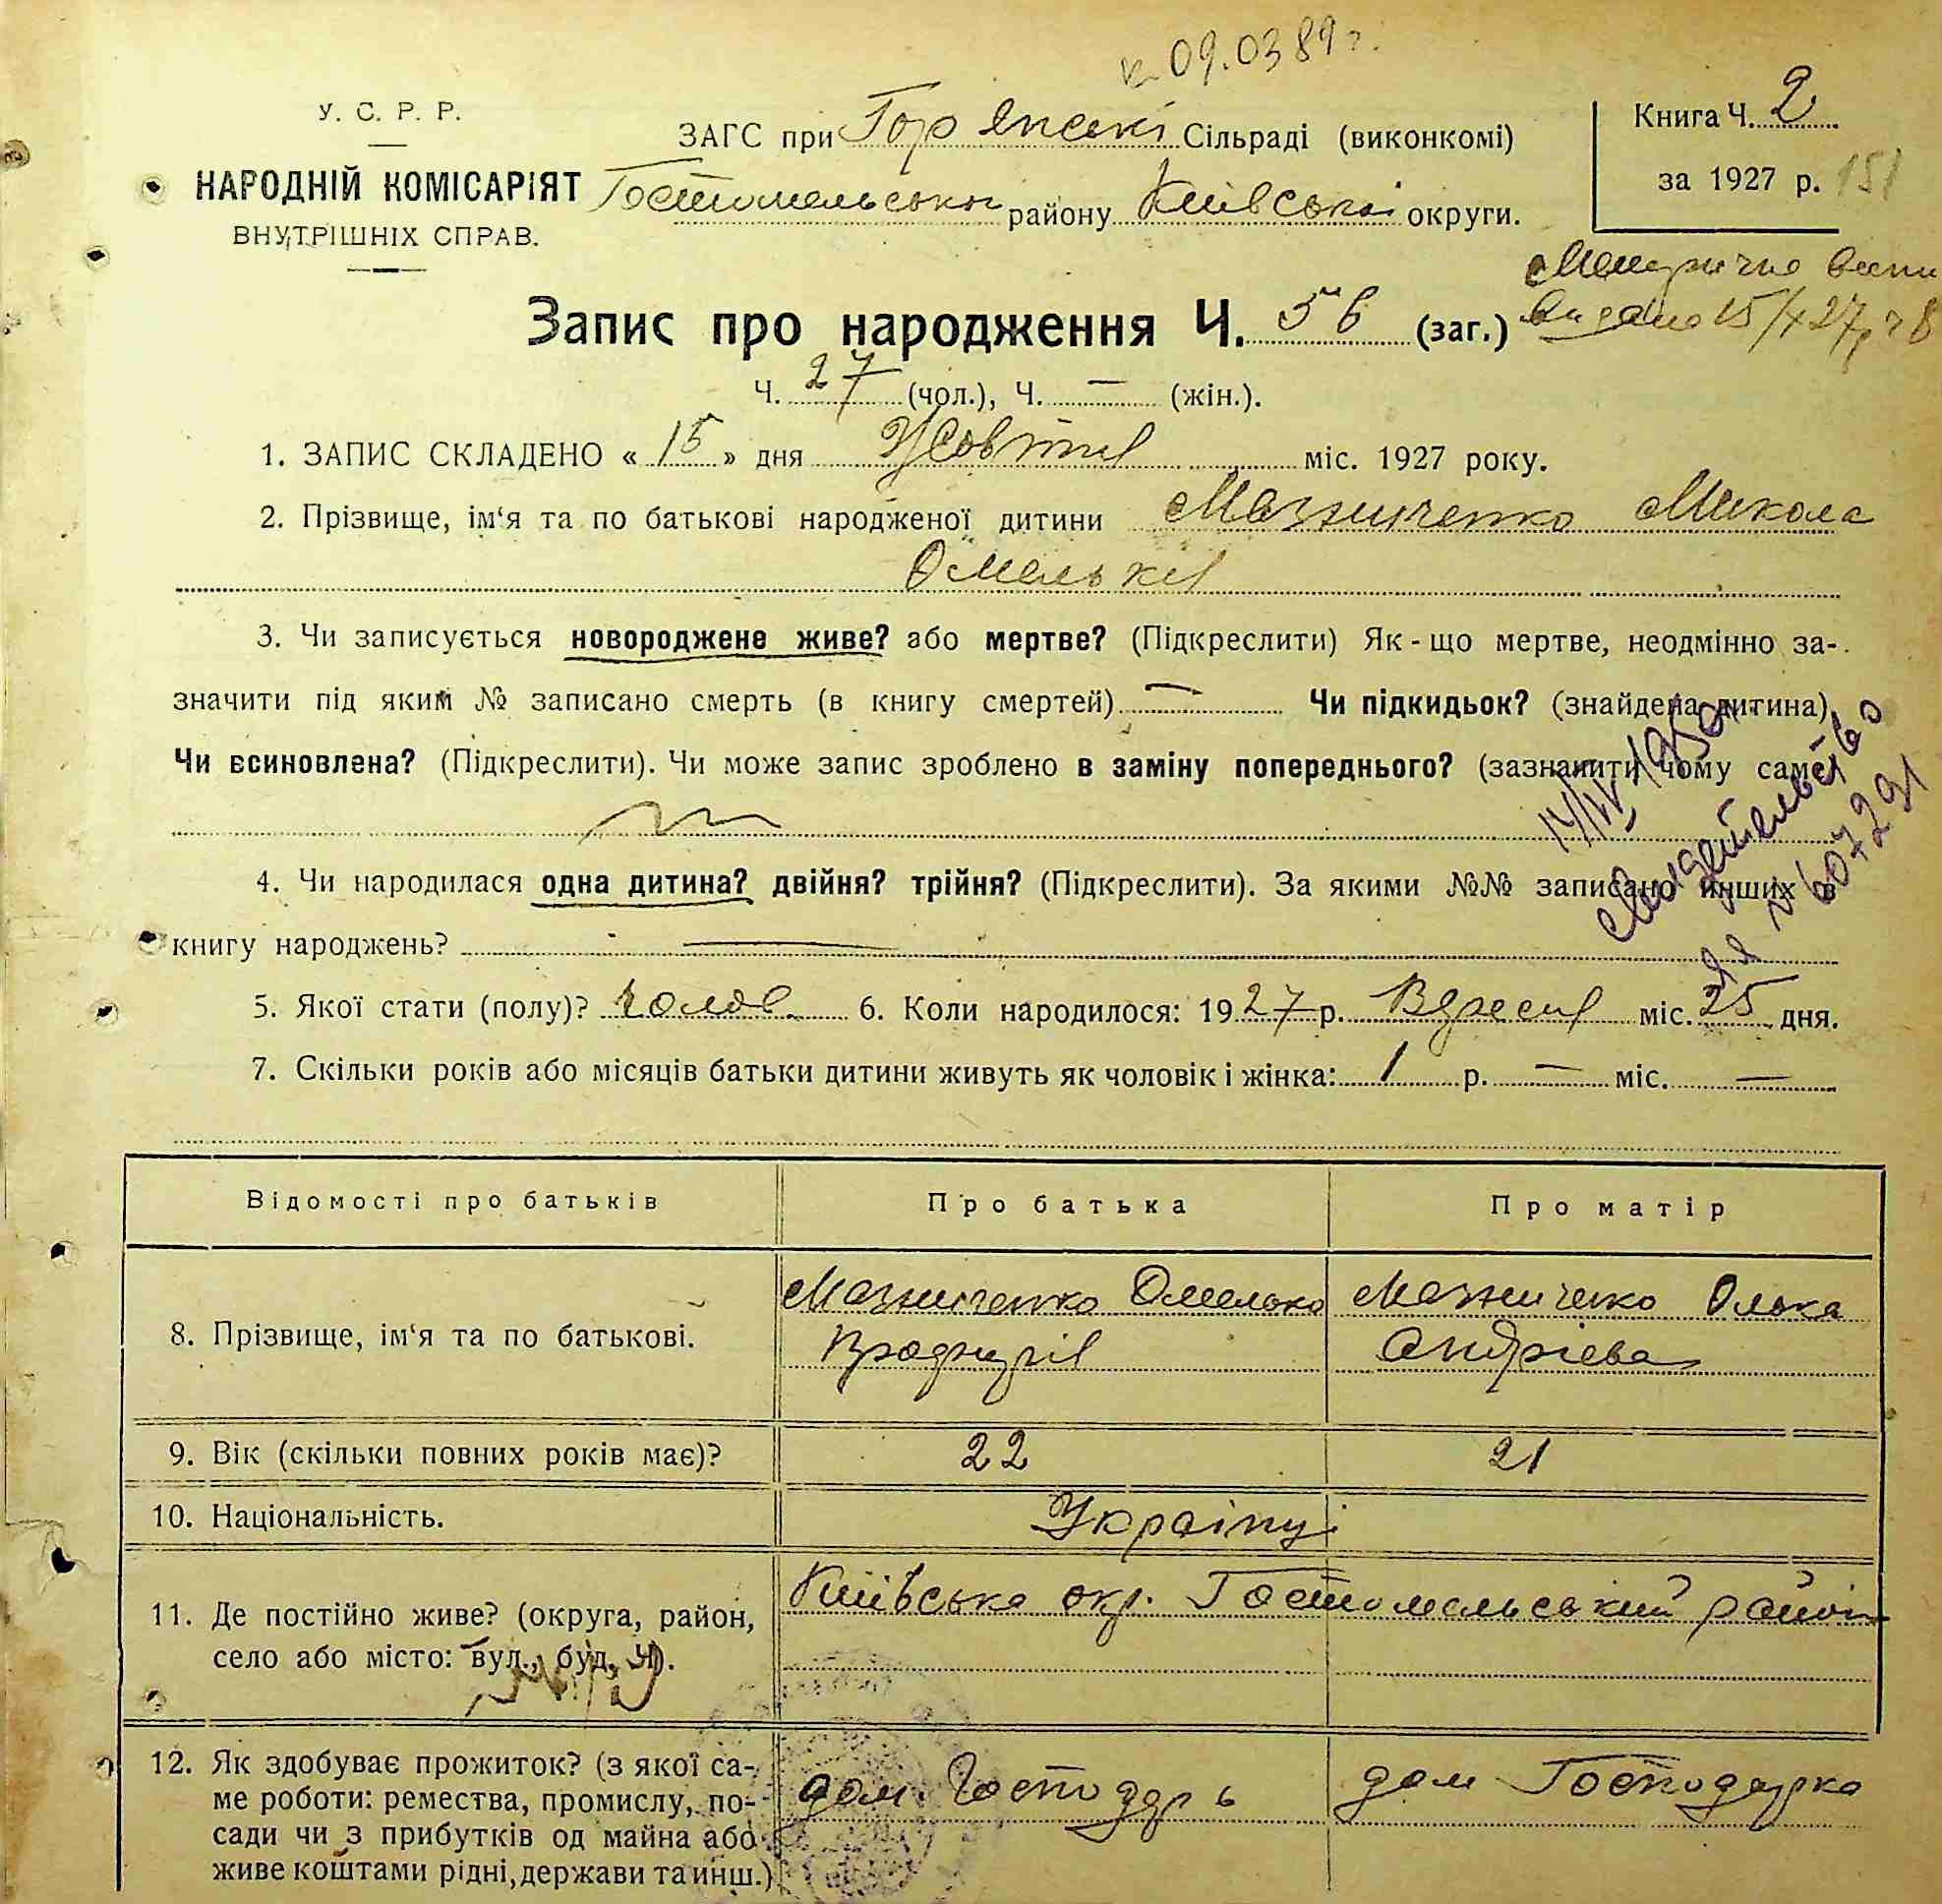 09.03 89 г.
У. С. Р. Р.
НАРОДНІЙ КОМІСАРІЯТ
ВНУТРІШНІХ СПРАВ.
ЗАГС при Гор'янські Сільраді (виконкомі)
Гостомельськ району Київські округи.
Книга Ч. 2
за 1927 р. 151
Метрично випи
видано 15/X 27 р
Запис про народження Ч. 56 (заг.)
Ч. 27 (чол.), Ч. — (жін.).
1. ЗАПИС СКЛАДЕНО « 15 » дня Жовтня міс. 1927 року.
2. Прізвище, ім'я та по батькові народженої дитини Мазниченко Микола
Омельків
3. Чи записується новороджене живе? або мертве? (Підкреслити) Як-що мертве, неодмінно за-
значити під яким № записано смерть (в книгу смертей) — Чи підкидьок? (знайдена дитина),
Чи всиновлена? (Підкреслити). Чи може запис зроблено в заміну попереднього? (зазначити чому саме)
14/IV 1950
Свидетельство
№ 607291
4. Чи народилася одна дитина? двійня? трійня? (Підкреслити). За якими №№ записано инших в
книгу народжень? —
5. Якої стати (полу)? чолов. 6. Коли народилося: 1927 р. Вересня міс. 25 дня.
7. Скільки років або місяців батьки дитини живуть як чоловік і жінка: 1 р. — міс. —
Відомості про батьків Про батька Про матір
8. Прізвище, ім'я та по батькові. Мазниченко Омелько Мазниченко Олька
Андріева
9. Вік (скільки повних років має)? 22 21
10. Національність. Українці
11. Де постійно живе? (округа, район,
село або місто: вул., буд. Ч).
Київська окр. Гостомельський район
12. Як здобуває прожиток? (з якої са-
ме роботи: ремества, промислу, по-
сади чи з прибутків од майна або
живе коштами рідні, держави та инш.)
дом. Господарь дом Господарка